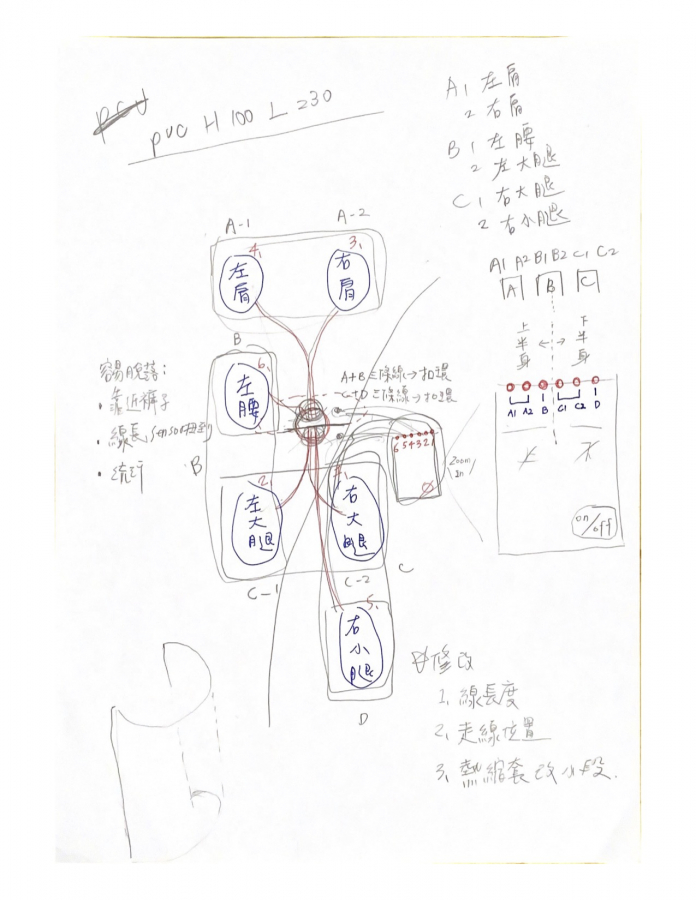 PVC H 100 L 230
A1 左肩
2 右肩
B1 左腰
2 左大腿
C1 右大腿
2 右小腿
A-1
A-2
4.
左肩
3.
右肩
A1 A2 B1 B2 C1 C2
A
B
C
上半身
下半身
A1 A2 B C1 C2 D
on/off
B
6.
左腰
容易脫落:
• 靠近褲子
• 線長, sensor扭到
• 流汗
A+B 三條線→扣環
C+D 三條線→扣環
6 5 4 3 2 1
Zoom in
B
2.
左大腿
1.
右大腿
C-1
C-2
C
5.
右小腿
D
修改
1. 線長度
2. 走線位置
3. 熱縮套改小段.